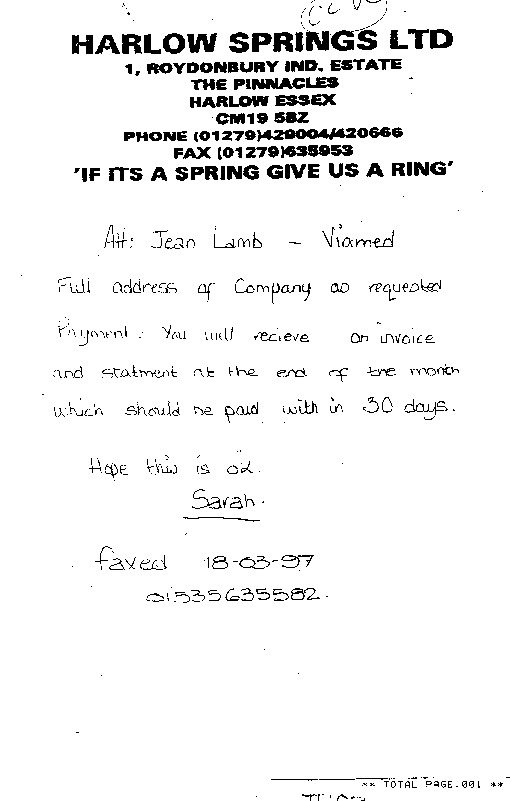 HARLOW SPRINGS LTD
1, ROYDONBURY IND. ESTATE
THE PINNACLES
HARLOW ESSEX
CM19 5BZ
PHONE (01279)429004/420666
FAX (01279)635953
'IF ITS A SPRING GIVE US A RING'
Att: Jean Lamb - Viamed
Full address of Company as requested
Payment: You will recieve an invoice
and statment at the end of the month
which should be paid with in 30 days.
Hope this is ok.
Sarah.
faxed 18-03-97
01535635582.
** TOTAL PAGE.001 **